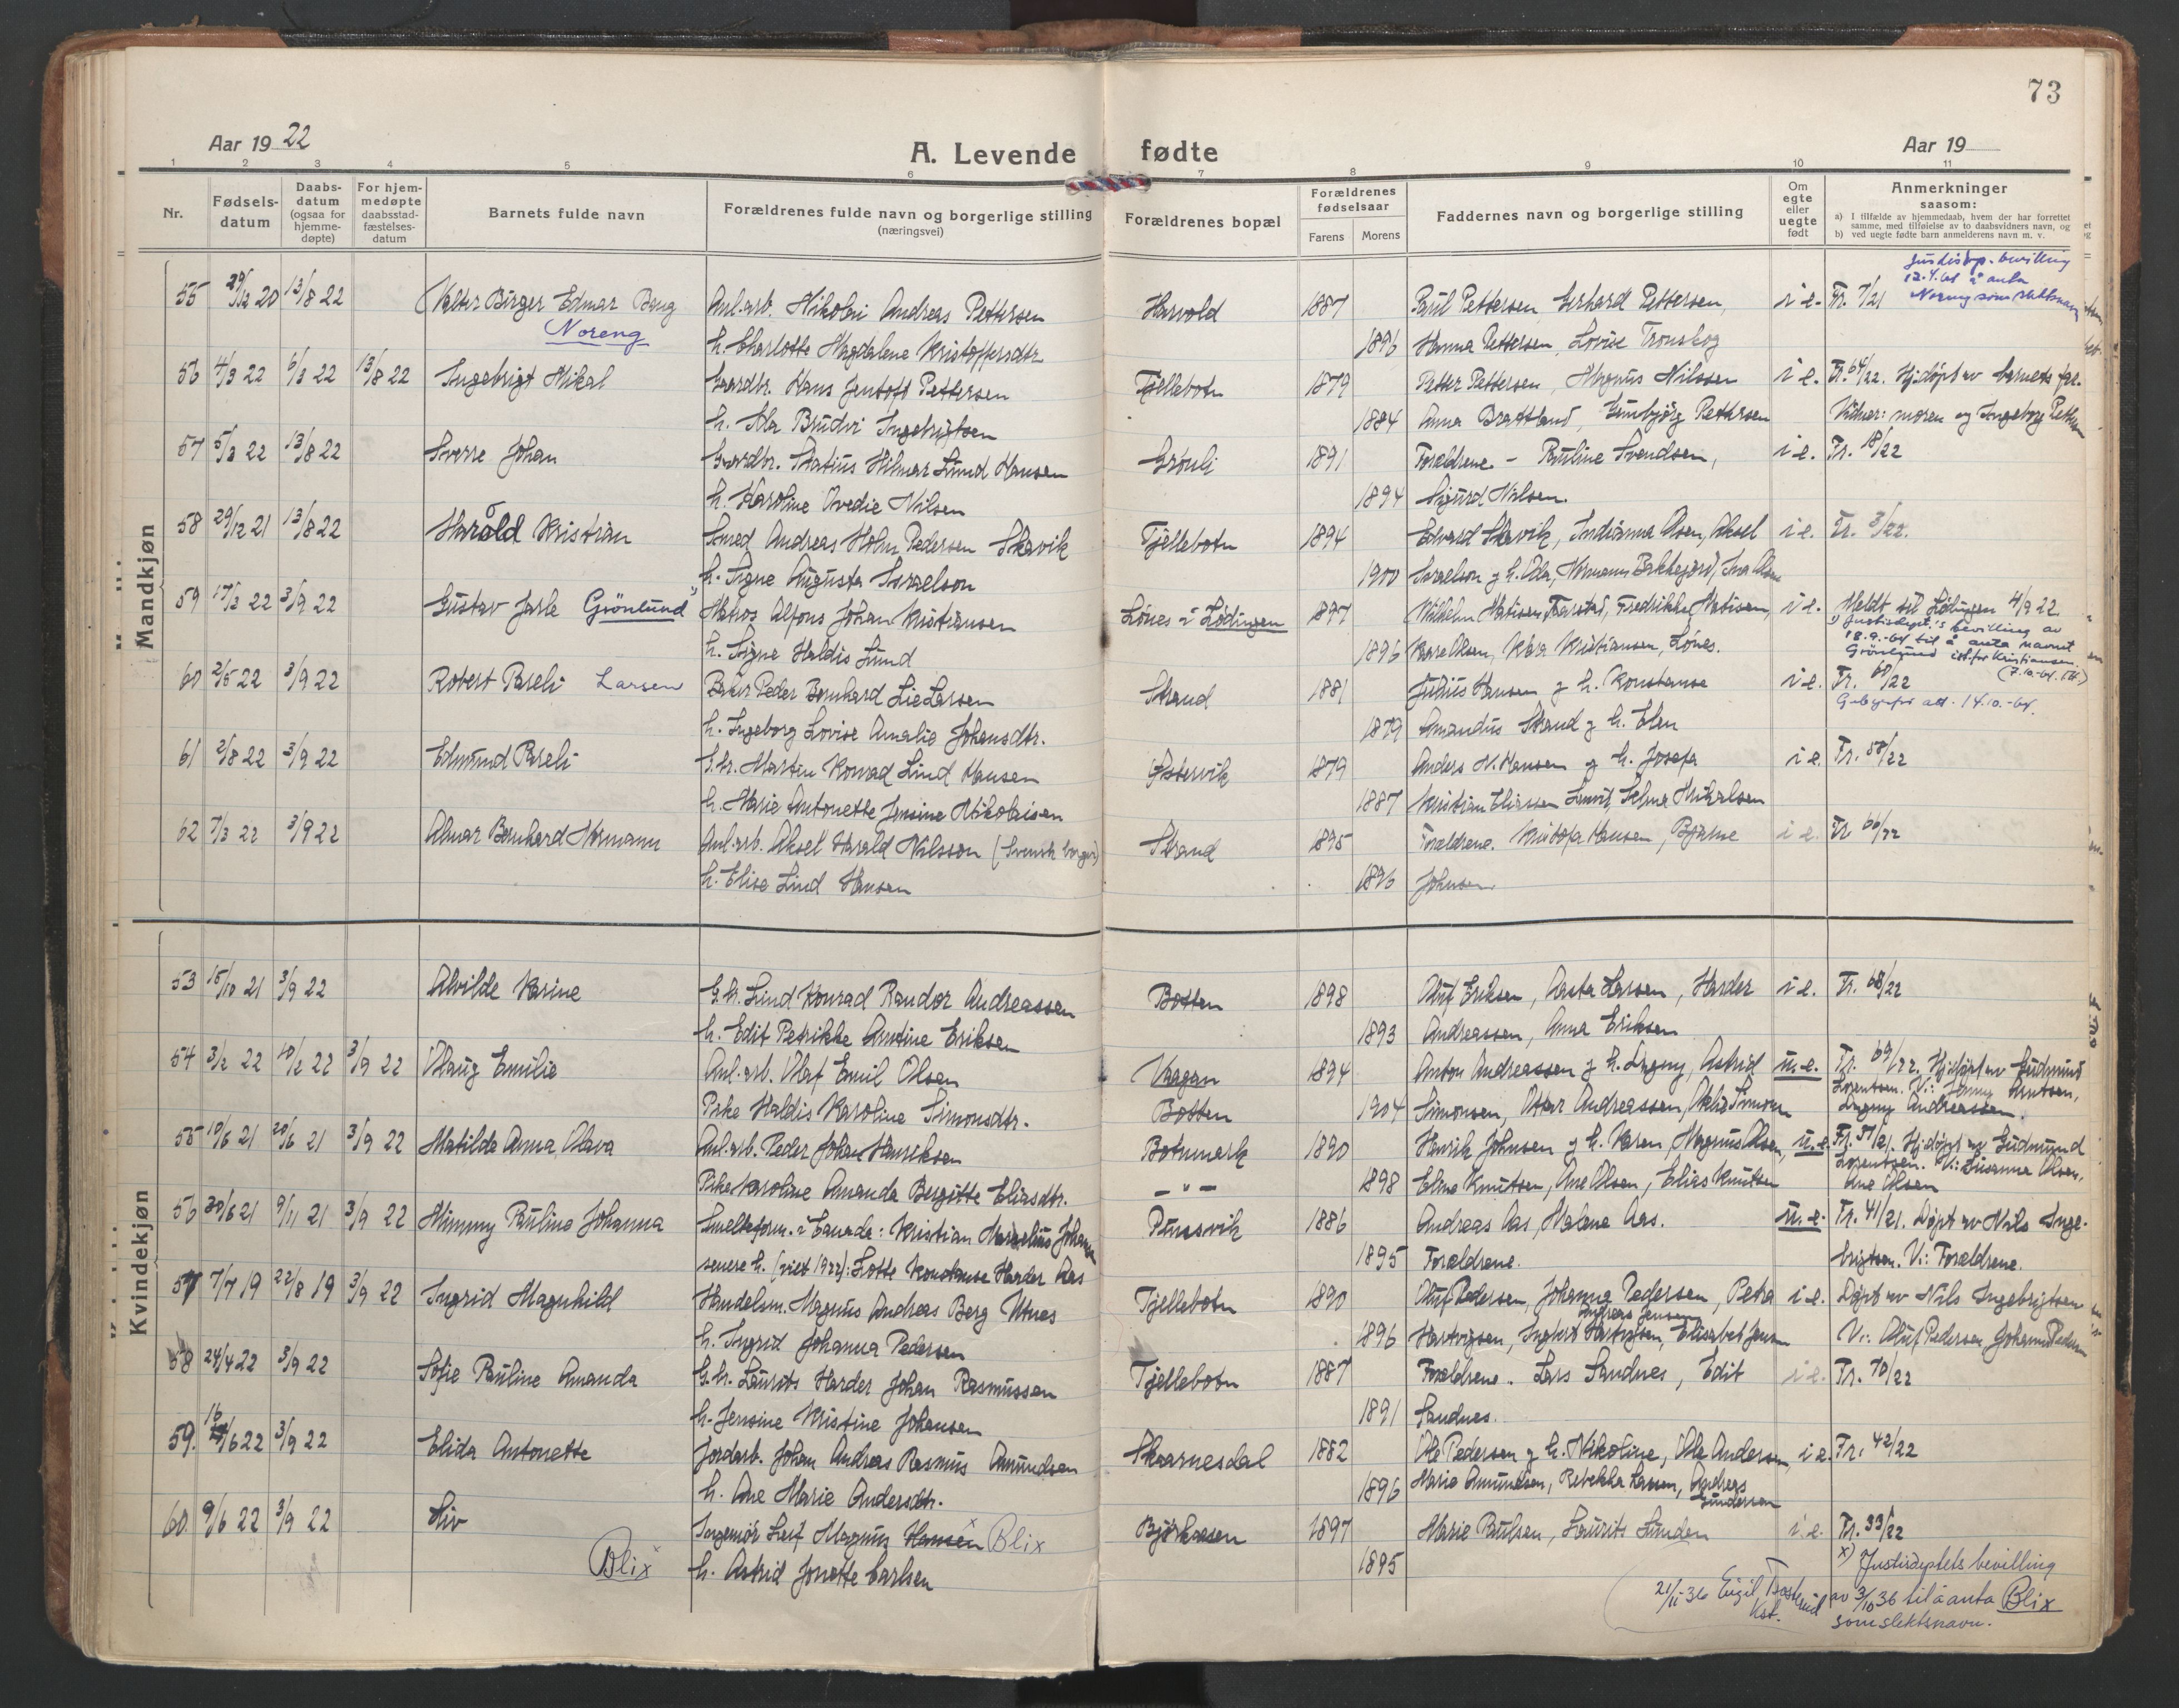 73
Aar 19 22
A. Levende fødte
Aar 19
1 2 3 4 5 6 7 8 9 10 11
Nr.
Fødsels-
datum
Daabs-
datum
(ogsaa for
hjemme-
døpte)
For hjem-
medøpte
daabsstad-
fæstelses-
datum
Barnets fulde navn
Forældrenes fulde navn og borgerlige stilling
(næringsvei)
Forældrenes bopæl
Forældrenes
fødselsaar
Farens Morens
Faddernes navn og borgerlige stilling
Om
egte
eller
uegte
født
Anmerkninger
saasom:
a) I tilfælde av hjemmedaab, hvem der har forrettet
samme, med tilføielse av to daabsvidners navn, og
b) ved uegte fødte barn anmelderens navn m. v.
Mandkjøn
55 29/12 20 13/8 22 Valter Birger Edmar Anl.arb. Nikolai Andreas Pettersen Harvold 1887 Paul Pettersen, Gerhard Pettersen, i e. Tr. 7/21
Noreng h. Charlotte Magdalene Kristoffersdtr. 1896 Hanna Pettersen, Lovise
12.4.61 å anta
Noreng som slektsnavn
56 4/3 22 6/3 22 13/8 22 Ingebrigt Mikal Gaardbr. Hans Jentoft Pettersen Tjellebotn 1879 Petter Pettersen, Magnus Nilssen i e. Tr. 64/22. Hj.døpt av barnets far.
h. Ingebrigtsen 1884 Anna Brattland, Pettersen Vidner: moren og Ingeborg
57 5/3 22 13/8 22 Sverre Johan Gaardbr. Statius Hilmar Lund Hansen Grønli 1891 Forældrene - Pauline Svendsen, i e. Tr. 18/22
h. Karoline Ovedie Nilsen 1894 Sigurd Nilsen.
58 29/12 21 13/8 22 Harald Kristian Smed Andreas Holm Pedersen Skavik Tjellebotn 1894 Edvard Skavik, Indianna Olsen, Aksel i e. Tr. 3/22.
h. Signe Augusta Israelson 1900 Israelson g h. Oda,
59 17/2 22 3/9 22 Gustav Jarle Grönlund Matros Alfons Johan Kristiansen Lönes i Lødingen 1897 Vilhelm Matisen, Fredrikke Matisen, i e. Meldt til Lødingen 4/9 22
h. Signe Haldis Lund 1896 Kaare Olsen, Kristiansen, Lønes.
1) Justisdept.'s bevilling av
18.9.-64 til å anta navnet
Grönlund ist.for Kristiansen.
60 2/5 22 3/9 22 Robert Pareli Larsen Baker Peder Bernhard Lie Larsen Strand 1881 Julius Hansen g h. Konstanse i e. Tr. 60/22
h. Ingeborg Lovise Amalie Johansdtr. 1879 Amandus Strand g h. Elen
14.10.-64.
61 2/8 22 3/9 22 Edmund Pareli G.br. Martin Konrad Lind Hansen Østervik 1879 Anders N. Hansen g h. Josefa i e. Tr. 58/22
h. Marie Antonette Jensine Nikolaisen 1887 Kristian Eliassen Selma Mikalsen
62 7/3 22 3/9 22 Almar Bernhard Normann Anl.arb. Aksel Harald Nilsson (Svensk borger) Strand 1895 Forældrene. Kristofa Hansen, Bjarne i e. Tr. 66/22
h. Elise Lind Hansen 1896 Johnsen.
Kvindekjøn
53 15/10 21 3/9 22 Alvilde Karine G.br. Lind Konrad Randor Andreassen Botten 1898 Oluf Eriksen, Aasta Larsen, Harder i e. Tr. 68/22
h. Edit Petrikke Antine Eriksen 1893 Andreassen, Anna Eriksen
54 3/2 22 10/2 22 3/9 22 Olaug Emilie Anl.arb. Olaf Emil Olsen Vaagan 1894 Anton Andreassen g h. Dagny, Astrid u.e. Tr. 69/22. Hj.døpt av Gudmund
Pike Haldis Karoline Simonsdtr. Botten 1904 Simonsen, Ottar Andreassen, Lorentsen. V.: Jenny Knutsen,
Dagny Andreassen.
55 10/6 21 20/6 21 3/9 22 Matilde Anna Olava Anl.arb. Peder Johan Henriksen Botnmark 1890 Henrik Johnsen g h. Karen, Magnus Olsen, u.e. Tr. 37/21. Hj.døpt av Gudmund
Pike Karoline Amanda Bergitte Eliasdtr. — " — 1898 Elma Knutsen, Ane Olsen, Elias Knutsen Lorentsen. V.: Susanna Olsen,
Ane Olsen
56 30/6 21 9/11 21 3/9 22 Mimmy Pauline Johanna i Canada: Kristian Marselius Johansen Pundsvik 1886 Andreas Aas, Malene Aas. u.e. Tr. 41/21. Døpt av Nils Inge-
senere h. (viet 1922): Lotte Konstanse Harder Aas 1895 Forældrene. brigtsen. V.: Forældrene.
57 7/7 19 22/8 19 3/9 22 Ingrid Magnhild Handelsm. Magnus Andreas Berg Utnes Tjellebotn 1890 Oluf Pedersen, Johanna Pedersen, Petra i e. Døpt av Nils Ingebrigtsen
h. Ingrid Johanna Pedersen 1896 Hartvigsen, Ingbert Hartvigsen, Andreas Jensen Elisabet Jensen V.: Oluf Pedersen, Johanna Pedersen
58 24/4 22 3/9 22 Sofie Pauline Amanda G.br. Laurits Harder Johan Rasmussen Tjellebotn 1887 Forældrene. Lars Sandnes, Edit i e. Tr. 70/22
h. Jensine Kristine Johansen 1891 Sandnes.
59. 16/6 22 3/9 22 Elida Antonette Jordarb. Johan Andreas Rasmus Amundsen Skaarnesdal 1882 Ole Pedersen g h. Nikoline, Ole Andersen, i e. Tr. 42/22
h. Ane Marie Andersdtr. 1896 Marie Amundsen, Rebekka Larsen, Andreas
Gundersen
60 9/6 22 3/9 22 Siv Ingeniør Leif Magnus Hansen x Blix Bjørkaasen 1897 Marie Paulsen, Laurits Lunden i e. Tr. 33/22
Blix x h. Astrid Jonette Carlsen 1895
x) Justisdeptets bevilling
av 3/10 36 til å anta Blix
som slektsnavn.
21/11 36 Eigil
Kst.